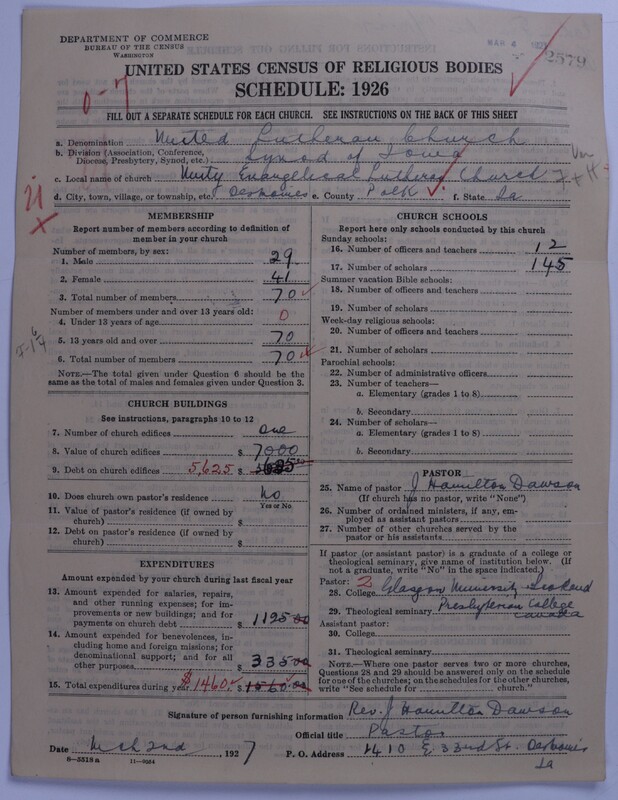 DEPARTMENT OF COMMERCE
BUREAU OF THE CENSUS
WASHINGTON
2579
UNITED STATES CENSUS OF RELIGIOUS BODIES
SCHEDULE: 1926
FILL OUT A SEPARATE SCHEDULE FOR EACH CHURCH. SEE INSTRUCTIONS ON THE BACK OF THIS SHEET
a. Denomination United Lutheran Church
b. Division (Association, Conference, Diocese, Presbytery, Synod, etc.) Synod of Iowa
c. Local name of church Unity Evangelical Lutheran Church
d. City, town, village, or township, etc. Desmoines e. County Polk f. State Ia
MEMBERSHIP
Report number of members according to definition of member in your church
Number of members, by sex:
1. Male 29
2. Female 41
3. Total number of members 70
Number of members under and over 13 years old:
4. Under 13 years of age 0
5. 13 years old and over 70
6. Total number of members 70
NOTE.—The total given under Question 6 should be the same as the total of males and females given under Question 3.
CHURCH BUILDINGS
See instructions, paragraphs 10 to 12
7. Number of church edifices one
8. Value of church edifices $ 7000
9. Debt on church edifices 5,625 $
10. Does church own pastor's residence No
Yes or No
11. Value of pastor's residence (if owned by church) $
12. Debt on pastor's residence (if owned by church) $
EXPENDITURES
Amount expended by your church during last fiscal year
13. Amount expended for salaries, repairs, and other running expenses; for improvements or new buildings; and for payments on church debt $ 1125 00
14. Amount expended for benevolences, including home and foreign missions; for denominational support; and for all other purposes $ 335 00
15. Total expenditures during year $1460. $ 1560.00
CHURCH SCHOOLS
Report here only schools conducted by this church
Sunday schools:
16. Number of officers and teachers 12
17. Number of scholars 145
Summer vacation Bible schools:
18. Number of officers and teachers
19. Number of scholars
Week-day religious schools:
20. Number of officers and teachers
21. Number of scholars
Parochial schools:
22. Number of administrative officers
23. Number of teachers—
a. Elementary (grades 1 to 8)
b. Secondary
24. Number of scholars—
a. Elementary (grades 1 to 8)
b. Secondary
PASTOR
25. Name of pastor J Hamilton Dawson
(If church has no pastor, write "None")
26. Number of ordained ministers, if any, employed as assistant pastors
27. Number of other churches served by the pastor or his assistants
If pastor (or assistant pastor) is a graduate of a college or theological seminary, give name of institution below. (If not a graduate, write "No" in the space indicated.)
Pastor: 2
28. College Glasgow University Scotland
29. Theological seminary Presbyterian College Canada
Assistant pastor:
30. College
31. Theological seminary
NOTE.—Where one pastor serves two or more churches, Questions 28 and 29 should be answered only on the schedule for one of the churches; on the schedules for the other churches, write "See schedule for church."
Signature of person furnishing information Rev. J Hamilton Dawson
Official title Pastor
Date Mch 2nd 1927 P. O. Address 1410 E 33rd St. Desmoines Ia
8—5318a 11—9264